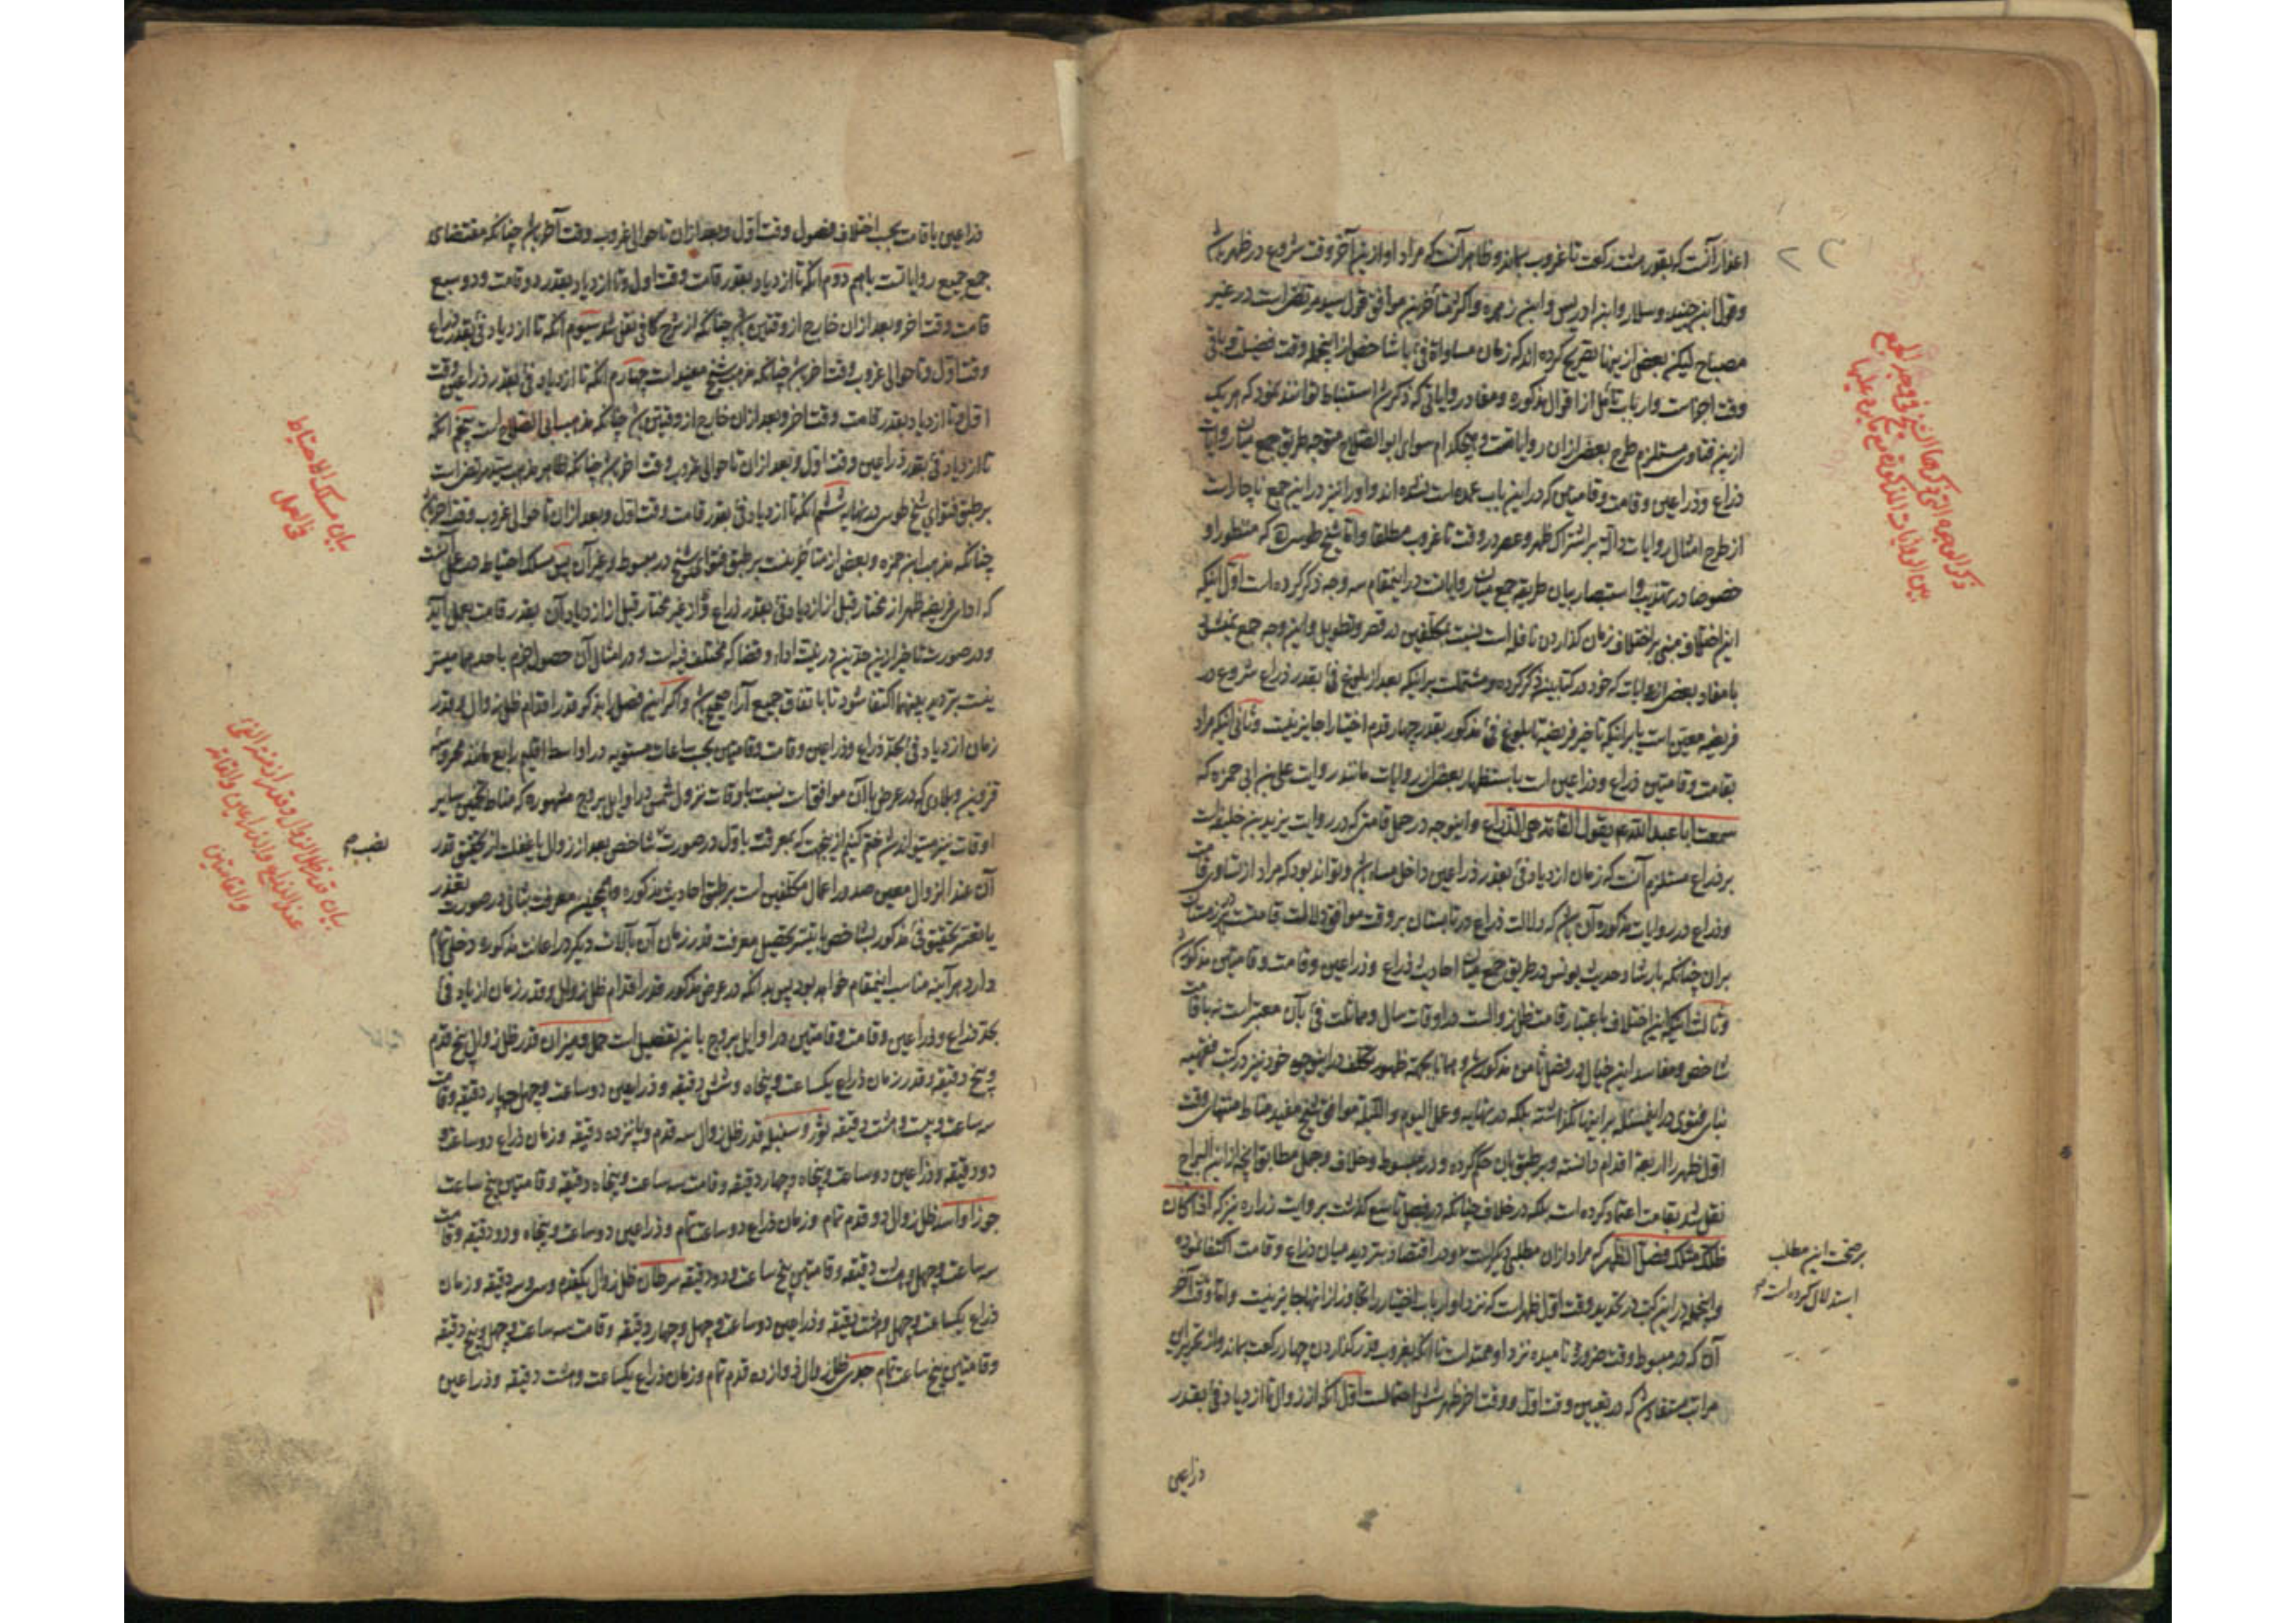 اعذار آنست که بقدر هشت رکعت تا غروب بماند و ظاهر آنست که مراد او ازین آخر وقت شروع در ظهر باشد
و قول ابن جنید و سلار و ابن ادریس و ابن زهره و اکثر متأخرین موافق قول سید مرتضی است در غیر
مصباح لیکن بعضی ازینها تصریح کرده اند که زمان مساواة فئ با شاخص از اینجمله وقت فضیلت و باقی
وقت اجزاست و ارباب تأمل از اقوال مذکوره و مفاد روایاتی که ذکر شد استنباط توانند نمود که هر یک
ازین فتاوی مستلزم طرح بعضی ازان روایاتست و هیچکدام سوای ابو الصلاح متوجه طریق جمع میان روایات
ذراع و ذراعین و قامت و قامتین که در این باب عمده است نشده اند و او را نیز در این جمع ناچار است
از طرح امثال روایات داله بر اشتراک ظهر و عصر در وقت تا غروب مطلقا و اما شیخ طوسی که منظور او
خصوصا در تهذیب و استبصار بیان طریقه جمع میان روایات در اینمقام سه وجه ذکر کرده است اول اینکه
این اختلاف مبنی بر اختلاف زمان گذاردن نافله است بنسبت بمکلفین در قصر و تطویل و این وجه جمع نمیشود
با مفاد بعضی از روایات که خود در کتابین ذکر کرده و مشتملست بر اینکه بعد از بلوغ فئ بقدر ذراع شروع در
فریضه معین است یا بر اینکه تاخیر فریضه تا بلوغ فئ مذکور بقدر چهار قدم اختیارا جایز نیست و ثانی اینکه مراد
بقامت و قامتین ذراع و ذراعین است باستظهار بعضی از روایات مانند روایت علی بن ابی حمزه که
سمعت ابا عبد الله ع یقول القامة هی الذراع و اینوجه در حمل قامتی که در روایت یزید بن خلیفه است
بر ذراع مستلزم آنست که زمان ازدیاد فئ بقدر ذراعین داخل مساء باشد و تواند بود که مراد از تساوی قامت
و ذراع در روایات مذکوره آن باشد که دلالت ذراع در تابستان بر وقت موافق دلالت قامتست در زمستان
بران چنانکه بارشاد حدیث یونس در طریق جمع میان احادیث ذراع و ذراعین و قامت و قامتین مذکور شد
و ثالث اینکه این اختلاف باعتبار قامت ظل زوالست در اوقات سال و مماثلت فئ بآن معتبر است نه با قامت
شاخص و مفاسد این خیال در فصل ثامن مذکور شد و همانا بجهة ظهور تکلف در این وجوه خود نیز در کتب فقهیه
بنای فتوی در اینمسئله بر اینها نگذاشته بلکه در نهایه و عمل الیوم و اللیلة موافق شیخ مفید مناط منتهای وقت
اول ظهر را اربعة اقدام دانسته و بر طبق بان حکم کرده و در مبسوط و خلاف و جمل مطابق آنچه از ابن البراج
نقل شد بقامت اعتماد کرده است بلکه در خلاف چنانکه در فصل تاسع گذشت بروایت زراره نیز که اذا کان
ظلک مثلک فصل الظهر که مراد ازان مطلبی دیگر است و در اقتصاد بتردید میان ذراع و قامت اکتفا نموده
و اینجمله در این کتب در تحدید وقت اول ظهر است که نزد او ارباب اختیار را تجاوز از انها جایز نیست و اما وقت آخر
آن که در مبسوط وقت ضرورت نامیده نزد او ممتد است تا آنکه بغروب قدر گذاردن چهار رکعت بماند و از تقریر این
مراتب مستفاد شد که در تعیین وقت اول و وقت اخر ظهر شش احتمالست اول آنکه از زوال تا ازدیاد فئ بقدر
ذراعین
ذکر الوجوه التی ذکرها الشیخ فی وجه الجمع
بین الروایات المذکورة مع ما یرد علیها
بر صحت این مطلب
استدلال کرده است
ذراعین یا قامت بحسب اختلاف فصول وقت اول و بعد ازان تا حوالی غروب وقت آخر باشد چنانکه مقتضای
جمع جمیع روایاتست باهم دوم آنکه تا ازدیاد بقدر قامت وقت اول و تا ازدیاد بقدر دو قامت و دو سبع
قامت وقت اخر و بعد ازان خارج از وقتین باشد چنانکه از شرح کافی نقل شد سیوم آنکه تا ازدیاد فئ بقدر ذراع
وقت اول و تا حوالی غروب وقت اخر باشد چنانکه مذهب شیخ مفید است چهارم آنکه تا ازدیاد فئ بقدر ذراعین وقت
اول و تا ازدیاد بقدر قامت وقت اخر و بعد ازان خارج از وقتین باشد چنانکه مذهب ابی الصلاح است پنجم آنکه
تا ازدیاد فئ بقدر ذراعین وقت اول و بعد ازان تا حوالی غروب وقت اخر باشد چنانکه ظاهر مذهب سید مرتضی است
بر طبق فتوای شیخ طوسی در نهایه ششم آنکه تا ازدیاد فئ بقدر قامت وقت اول و بعد ازان تا حوالی غروب وقت اخر باشد
چنانکه مذهب ابن حمزه و بعضی از متأخرینست بر طبق فتوای شیخ در مبسوط و غیر آن پس مسلک احتیاط در عمل آنست
که ادای فریضه ظهر از مختار قبل از ازدیاد فئ بقدر ذراع و از غیر مختار قبل از ازدیاد آن بقدر قامت بعمل آید
و در صورت تاخیر ازین حدین در نیت اداء و قضا که مختلف فیه است و در امثال آن حصول جزم باحدهما میسر
نیست بتردید بینهما اکتفا شود تا باتفاق جمیع آراء صحیح باشد و اگر این فصل را بذکر قدر اقدام ظل زوال و بقدر
زمان ازدیاد فئ بحد ذراع و ذراعین و قامت و قامتین بحسب ساعات مستویه در اواسط اقلیم رابع مانند محروسه
قزوین و بلادی که در عرض با آن موافق است نسبت باوقات نزول شمس در اوایل بروج مشهوره که مناط تخمین سایر
اوقات نیز میتواند شد ختم کنیم ازینجهت که بمعرفت باول در صورت شاخص بعد از زوال یا غفلت از تحقیق قدر
آن عند الزوال معین صدور اعمال مکلفین است بر طبق احادیث مذکوره و همچنین معرفت بثانی در صورت تعذر
یا تعسر تحقیق فئ مذکور بشاخص با تیسر تحصیل معرفت قدر زمان آن بآلات دیگر در اعانت مذکوره دخلی تمام
دارد هر آینه مناسب اینمقام خواهد بود پس بدانکه در عرض مذکور قدر اقدام ظل زوال و قدر زمان ازدیاد فئ
بحد ذراع و ذراعین و قامت و قامتین در اوایل بروج باین تفصیل است حمل و میزان قدر ظل زوال پنج قدم
و پنج دقیقه و قدر زمان ذراع یکساعت و پنجاه و شش دقیقه و ذراعین دو ساعت و چهل و چهار دقیقه و قامت
سه ساعت و بیست و هشت دقیقه ثور و سنبله قدر ظل زوال سه قدم و پانزده دقیقه و زمان ذراع دو ساعت و
دو دقیقه و ذراعین دو ساعت و پنجاه و چهار دقیقه و قامت سه ساعت و پنجاه دقیقه و قامتین پنج ساعت
جوزا و اسد ظل زوال دو قدم تمام و زمان ذراع دو ساعت تمام و ذراعین دو ساعت و پنجاه و دو دقیقه و قامت
سه ساعت و چهل و هشت دقیقه و قامتین پنج ساعت و دو دقیقه سرطان ظل زوال یکقدم و سی و سه دقیقه و زمان
ذراع یکساعت و چهل و هشت دقیقه و ذراعین دو ساعت و چهل و چهار دقیقه و قامت سه ساعت و چهل و پنج دقیقه
و قامتین پنج ساعت تمام جدی ظل زوال دوازده قدم تمام و زمان ذراع یکساعت و هشت دقیقه و ذراعین
بیان مسلک الاحتیاط
فی العمل
بیان قدر ظل الزوال و قدر ازمنة الفئ
عند الذراع و الذراعین و القامة
و القامتین
نصب